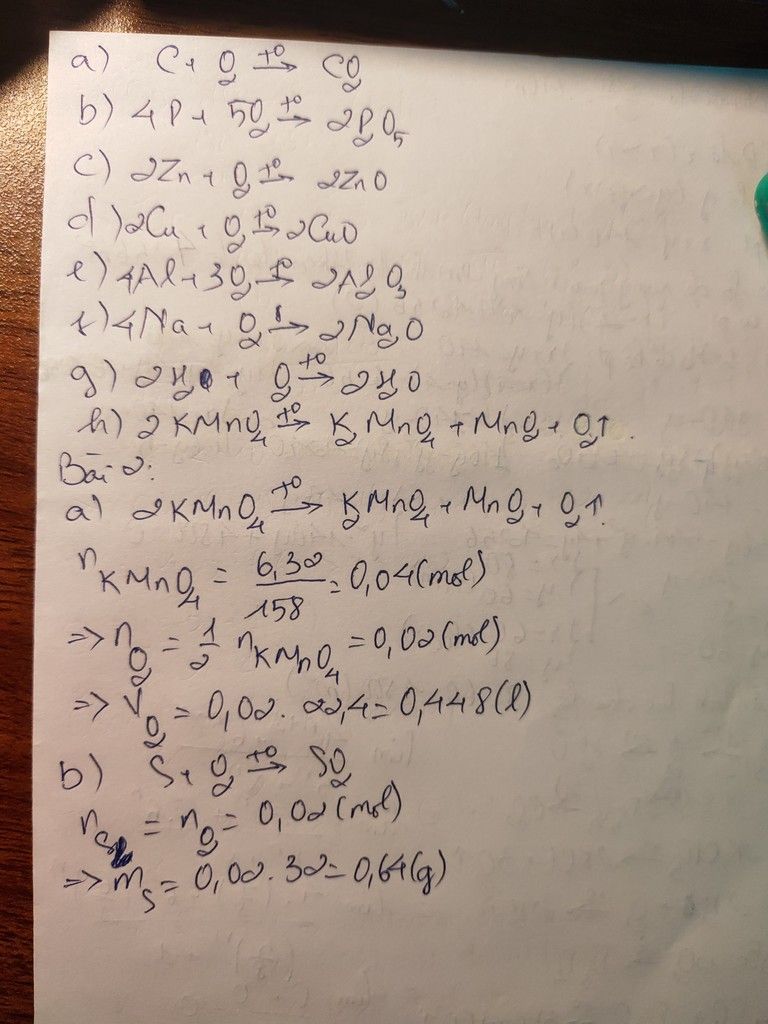 a) C + O₂ →(t⁰) CO₂
b) 4P + 5O₂ →(t⁰) 2P₂O₅
c) 2Zn + O₂ →(t⁰) 2ZnO
d) 2Cu + O₂ →(t⁰) 2CuO
e) 4Al + 3O₂ →(t⁰) 2Al₂O₃
f) 4Na + O₂ →(t⁰) 2Na₂O
g) 2H₂ + O₂ →(t⁰) 2H₂O
h) 2KMnO₄ →(t⁰) K₂MnO₄ + MnO₂ + O₂↑.
Bài 2:
a) 2KMnO₄ →(t⁰) K₂MnO₄ + MnO₂ + O₂↑.
n_KMnO₄ = 6,32/158 = 0,04 (mol)
=> n_O₂ = 1/2 n_KMnO₄ = 0,02 (mol)
=> V_O₂ = 0,02 . 22,4 = 0,448 (l)
b) S + O₂ →(t⁰) SO₂
n_S = n_O₂ = 0,02 (mol)
=> m_S = 0,02 . 32 = 0,64 (g)